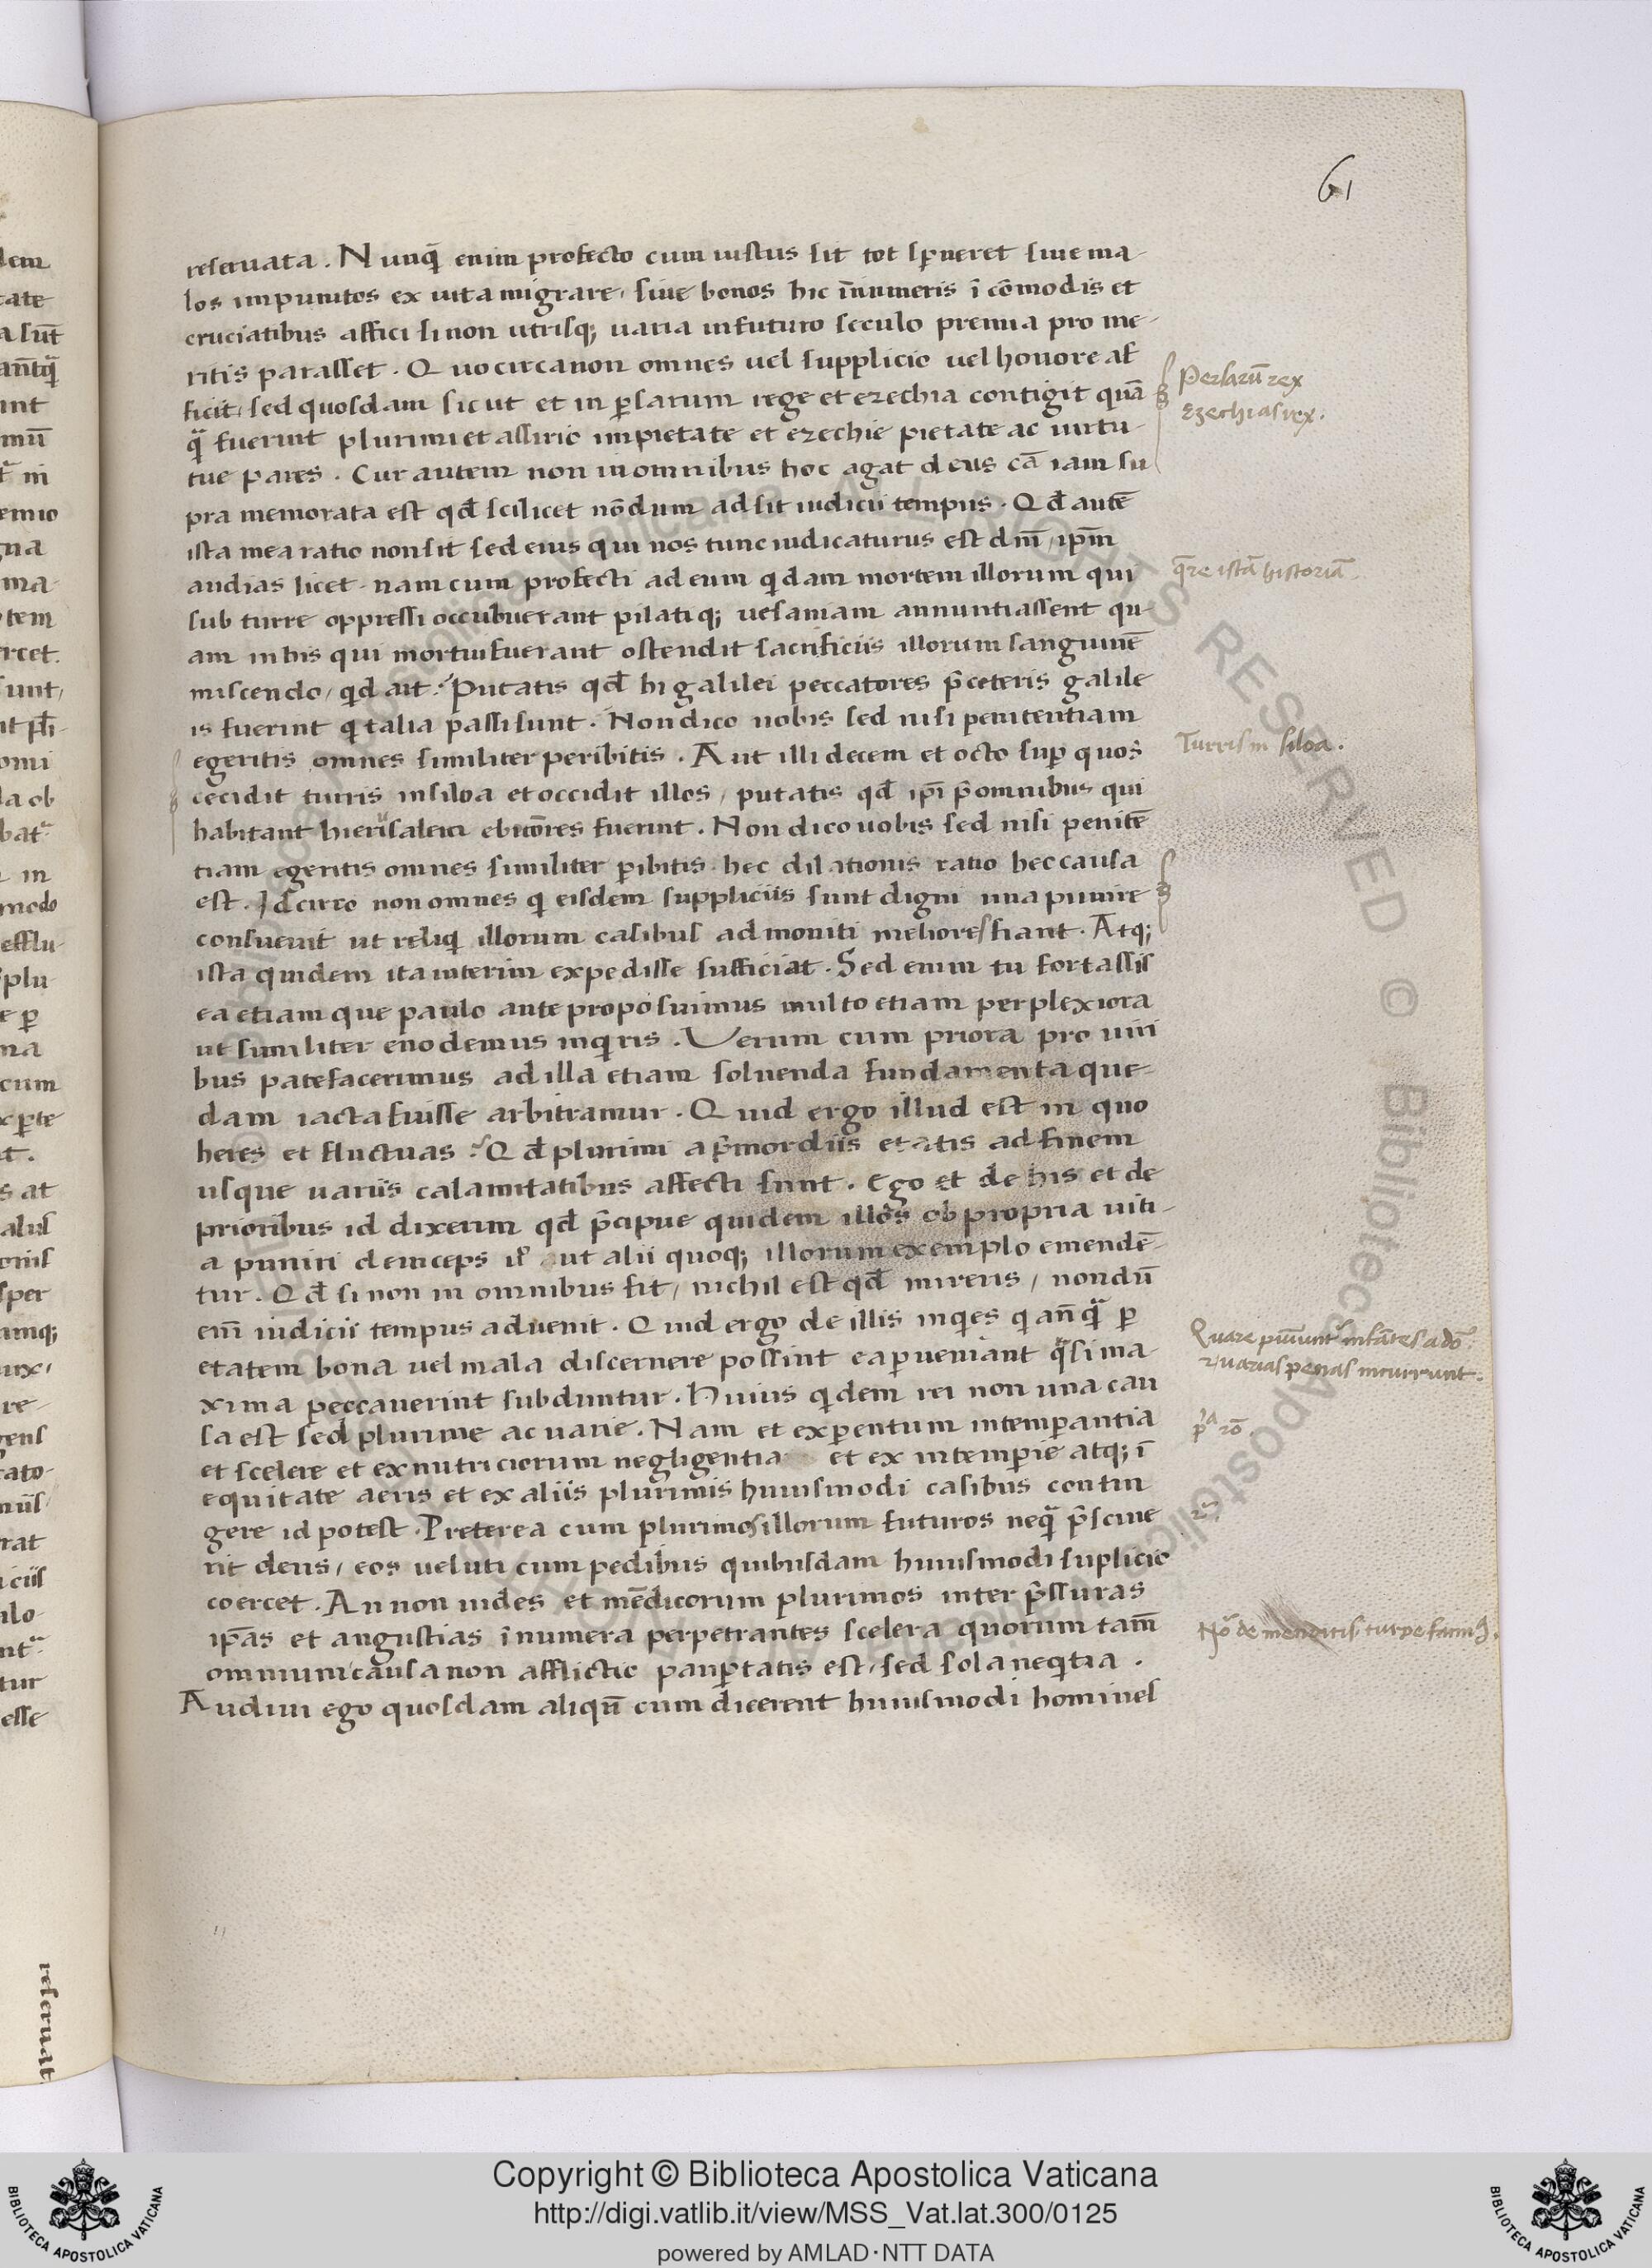 61
reseruata. Nunq̃ enim profecto cum iustus sit tot sꝑneret siue ma-
los impunitos ex uita migrare, siue bonos hic īnumeris ī cōmodis et
cruciatibus affici si non utrisq; uaria in futuro seculo premia pro me-
ritis parasset. Quo circa non omnes uel supplicio uel honore af
ficit, sed quosdam sicut et in ꝑsarum rege et ezechia contigit quā
q̃ fuerint plurimi et assirio impietate et ezechie pietate ac uirtu-
tue pares. Cur autem non in omnibus hoc agat deus cā iam su
pra memorata est qd̄ scilicet nōdum adsit iudicii tempus. Qd̄ autē
ista mea ratio non sit sed eius qui nos tunc iudicaturus est dm̄, ip̄m
audias licet. nam cum profecti ad eum qdam mortem illorum qui
sub turre oppressi occubuerant pilatiq; uesaniam annuntiassent qu-
am in his qui mortui fuerant ostendit sacrificiis illorum sanguinē
miscendo, qd ait: Putatis qd̄ hi galilei peccatores p̄ceteris galile
is fuerint q talia passi sunt. Non dico uobis sed nisi penitentiam
egeritis omnes similiter peribitis. Aut illi decem et octo suꝑ quos
cecidit turris in siloa et occidit illos, putatis qd̄ ip̄i p̄omnibus qui
habitant hierusalem ebitōres fuerint. Non dico uobis sed nisi penitē
tiam egeritis omnes similiter ꝑibitis. hec dilationis ratio hec causa
est. Id circo non omnes q eisdem suppliciis sunt digni una punire
consueuit ut reliqi illorum casibus admoniti meliores fiant. Atq;
ista quidem ita interim expedisse sufficiat. Sed enim tu fortassis
ea etiam que paulo ante proposuimus multo etiam perplexiora
ut similiter enodemus inqris. Verum cum priora pro uiri
bus patefacerimus ad illa etiam soluenda fundamenta que-
dam iacta fuisse arbitramur. Quid ergo illud est in quo
heres et fluctuas? Qd̄ plurimi a p̄mordiis etatis ad finem
usque uariis calamitatibus affecti sunt. Ego et de his et de
prioribus id dixerim qd̄ p̄cipue quidem illos ob propria uiti-
a puniri deinceps ut alii quoq; illorum exemplo emendē-
tur. Qd̄ si non in omnibus fit, nichil est qd̄ mireris, nondū
em̄ iudicii tempus aduenit. Quid ergo de illis inqies q an̄q̃ ꝑ
etatem bona uel mala discernere possint ea ꝑueniant q̃si ma-
xima peccauerint subduntur. Huius qdem rei non una cau
sa est sed plurime ac uarie. Nam et ex parentum intemperantia
et scelere et ex nutriciorum negligentia et ex intemperie atq; ī
equitate aeris et ex aliis plurimis huiusmodi casibus contin
gere id potest. Preterea cum plurimos illorum futuros neq̃ p̄sciue
rit deus, eos ueluti cum pedibus quibusdam huiusmodi suplicio
coercet. An non uides et mēdicorum plurimos inter p̄ssuras
ip̄as et angustias īnumera perpetrantes scelera quorum tam̄
omnium causa non afflictio pauꝑtatis est, sed sola neqtia.
Audiui ego quosdam aliqn̄ cum dicerent huiusmodi homines
Persarū rex
Ezechias rex.
q̄re istā historiā
Turris in siloa.
Quare piūuntr infātes a dō.
et uarias penas incurrunt.
pa rō.
2a
Nō de mendicis turpe
reseruat
Copyright © Biblioteca Apostolica Vaticana
http://digi.vatlib.it/view/MSS_Vat.lat.300/0125
powered by AMLAD·NTT DATA
BIBLIOTECA APOSTOLICA VATICANA
BIBLIOTECA APOSTOLICA VATICANA